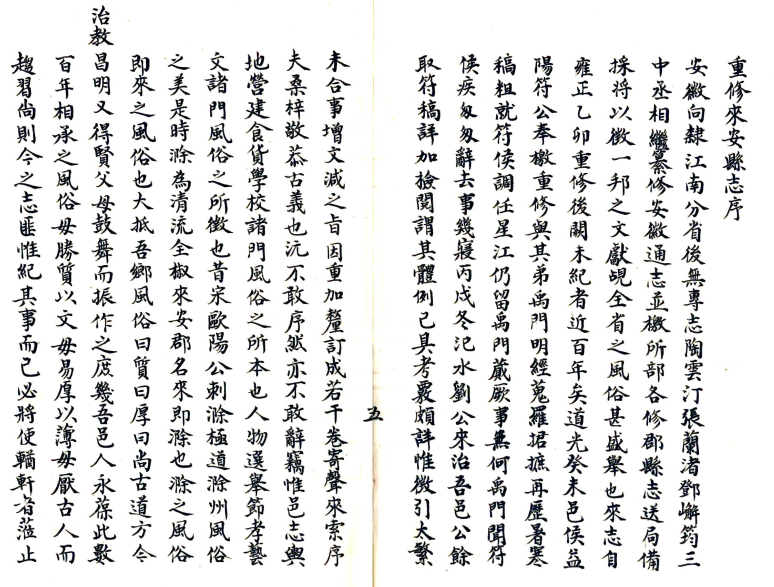 重修來安縣志序
安徽向隸江南分省後無專志陶雲汀張蘭渚鄧嶰筠三
中丞相繼纂修安徽通志並檄所部各修郡縣志送局備
採將以徵一邦之文獻覘全省之風俗甚盛舉也來志自
雍正乙卯重修後闕未紀者近百年矣道光癸未邑侯益
陽符公奉檄重修與其弟禹門明經蒐羅捃摭再歷暑寒
稿粗就符侯調任星江仍留禹門蕆厥事無何禹門聞符
侯疾匆匆辭去事幾寢丙戌冬汜水劉公來治吾邑公餘
取符稿詳加檢閱謂其體例已具考覈頗詳惟徵引太繁
五
未合事增文減之旨因重加釐訂成若干卷寄聲來索序
夫桑梓敬恭古義也沅不敢序然亦不敢辭竊惟邑志輿
地營建食貨學校諸門風俗之所本也人物選舉節孝藝
文諸門風俗之所徵也昔宋歐陽公刺滁極道滁州風俗
之美是時滁為清流全椒來安郡名來即滁也滁之風俗
即來之風俗也大抵吾鄉風俗曰質曰厚曰尚古道方今
治教
昌明又得賢父母鼓舞而振作之庶幾吾邑人永葆此數
百年相承之風俗毋勝質以文毋易厚以薄毋厭古人而
趨習尚則今之志匪惟紀其事而已必將使輶軒者蒞止